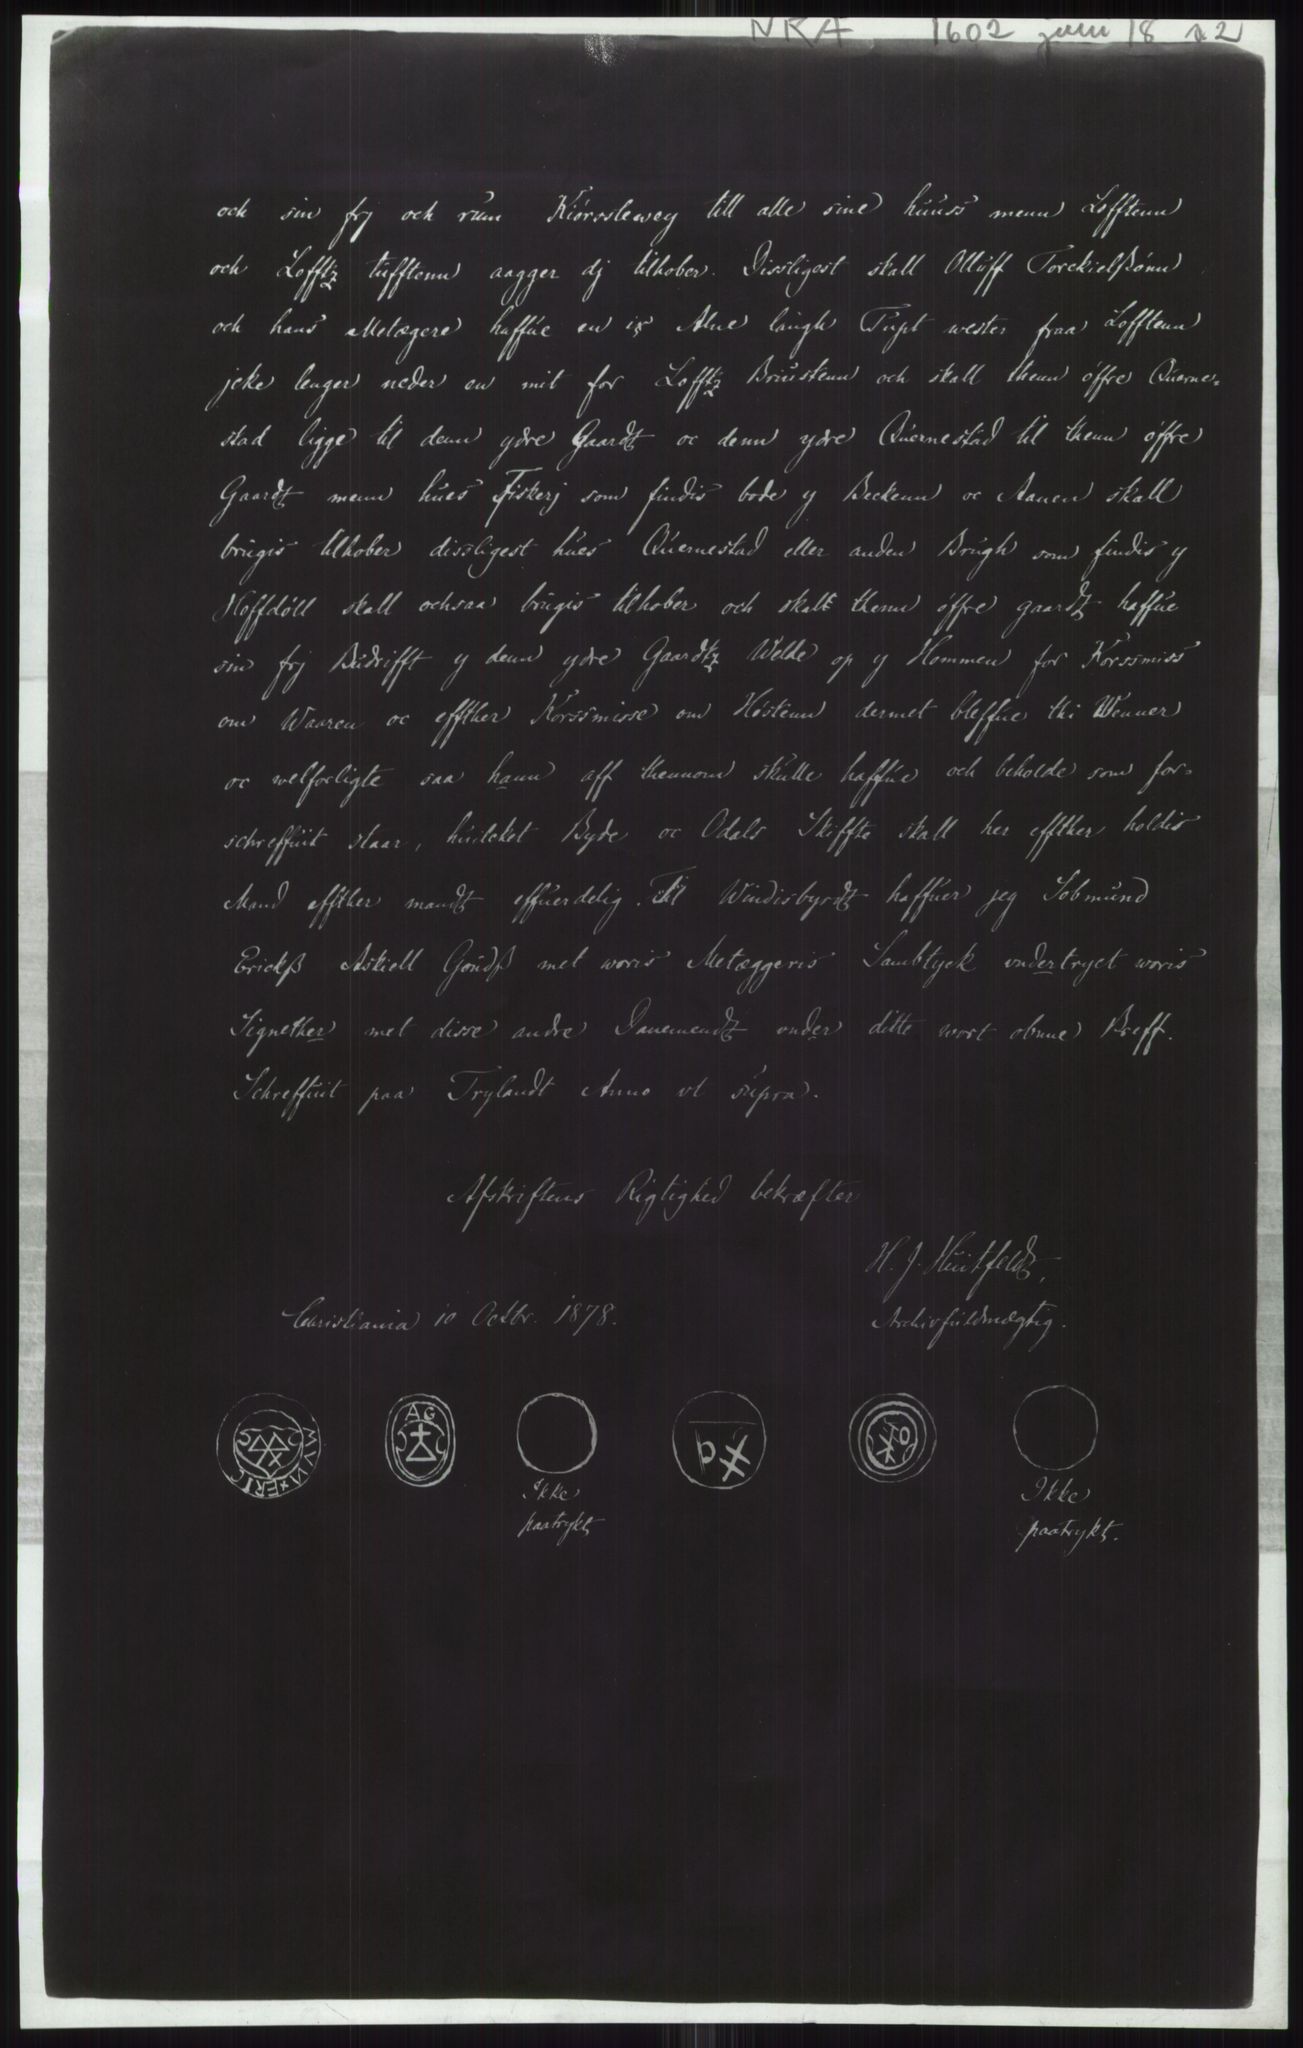 NRA 1602 juni 18 n 2
och sin frj och rum Kiørsslewey till alle sine huuss menn Lofftenn
och Lofftz tufftenn aagger dj tilhober. Dissligest skall Olluff Torckielßønn
och hans Metægere haffue en ix Alne laugh Tupt wester fraa Lofftenn
jcke lenger neder en mit for Lofftz Brustenn och skall thenn øffre Querne-
stad ligge til denn ydre Gaardt oc denn ydre Quernestad til thenn øffre
Gaardt menn hues Fiskerj som findis bode y Beckenn oc Aanen skall
brugis tilhober dissligest hues Quernestad eller anden Brugh som findis y
Hoffdøll skall ochsaa brugis tilhober och skall thenn øffre gaardt haffue
sin frj Budrifft y denn ydre Gaardtz Welde op y Hommen for Korssmiss
om Waaren oc effther Korssmisse om Høstenn dermet bleffue thi Wenner
oc welforligte saa hann aff thennom skulle haffue och beholde som for-
schreffuit staar, huilcket Byde oc Odals Skiffte skall her effther holdis
Mand effther mandt effuerdelig. Til Windisbyrdt haffuer jeg Sobmund
Erickß Askiell Gøudß met woris Metæggeris Sambtyck vndertryct woris
Signether met disse andre Danemendt vnder ditte wort obnne Breff.
Schreffuit paa Trylandt Anno vt supra.
Afskriftens Rigtighed bekræfter
H. J. Huitfeldt,
Christiania 10 Octbr. 1878.
Archivfuldmægtig.
MVN × ERIC
AG
Ikke
paatrykt
Ikke
paatrykt.